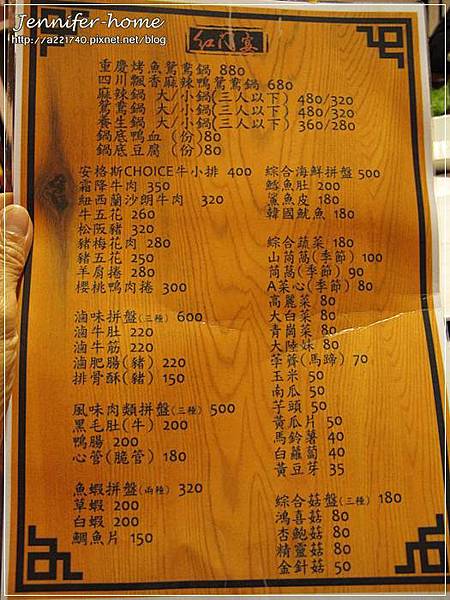 Jennifer-home
http://a221740.pixnet.net/blog
紅門宴
重慶烤魚鴛鴦鍋 880
四川飄香麻辣鴨鴛鴦鍋 680
麻辣鍋 大/小鍋(三人以下) 480/320
鴛鴦鍋 大/小鍋(三人以下) 480/320
養生鍋 大/小鍋(三人以下) 360/280
鍋底鴨血 (份)80
鍋底豆腐 (份)80
安格斯CHOICE牛小排 400
霜降牛肉 350
紐西蘭沙朗牛肉 320
牛五花 260
松阪豬 320
豬梅花肉 280
豬五花 250
羊肩捲 280
櫻桃鴨肉捲 300
滷味拼盤(三種) 600
滷牛肚 220
滷牛筋 220
滷肥腸(豬) 220
排骨酥(豬) 150
風味肉類拼盤(三種) 500
黑毛肚(牛) 200
鴨腸 200
心管(脆管) 180
魚蝦拼盤(兩種) 320
草蝦 200
白蝦 200
鯛魚片 150
綜合海鮮拼盤 500
鱈魚肚 200
鯊魚皮 180
韓國魷魚 180
綜合蔬菜 180
山茼萵(季節) 100
茼萵(季節) 90
A菜心(季節) 80
高麗菜 80
大白菜 80
青崗菜 80
大陸妹 80
荸薺(馬蹄) 70
玉米 50
南瓜 50
芋頭 50
黃瓜片 50
馬鈴薯 40
白蘿蔔 40
黃豆芽 35
綜合菇盤(三種) 180
鴻喜菇 80
杏鮑菇 80
精靈菇 80
金針菇 50
Jennifer-home
http://a221740.pixnet.net/blog